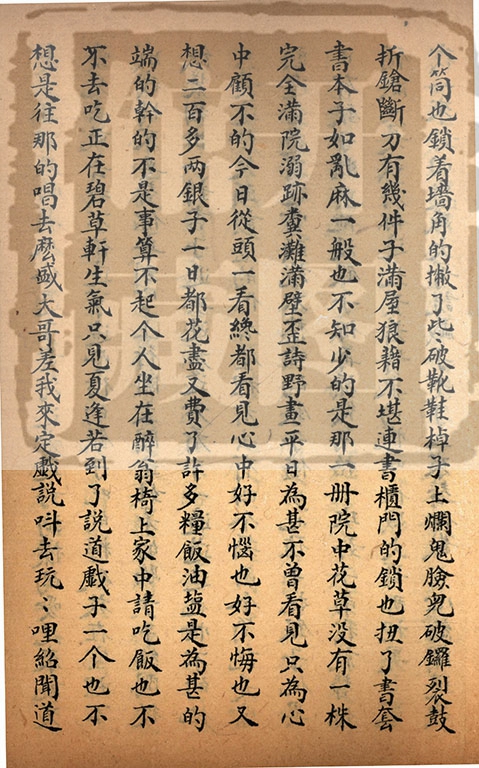 个筒也鎖着墻角的撇了些破靴鞋棹子上爛鬼臉兒破鑼裂鼓
折鎗斷刀有幾件子滿屋狼藉不堪連書櫃門的鎖也扭了書套
書本子如亂麻一般也不知少的是那一册院中花草没有一株
完全滿院溺跡糞灘滿壁歪詩野畫平日為甚不曾看見只為心
中顧不的今日從頭一看總都看見心中好不惱也好不悔也又
想二百多两銀子一日都花盡又費了許多糧飯油塩是為甚的
端的幹的不是事算不起个人坐在醉翁椅上家中請吃飯也不
不去吃正在碧草軒生氣只見夏逢若到了說道戲子一个也不
想是往那的唱去麽盛大哥差我來定戲說呌去玩〻哩紹聞道